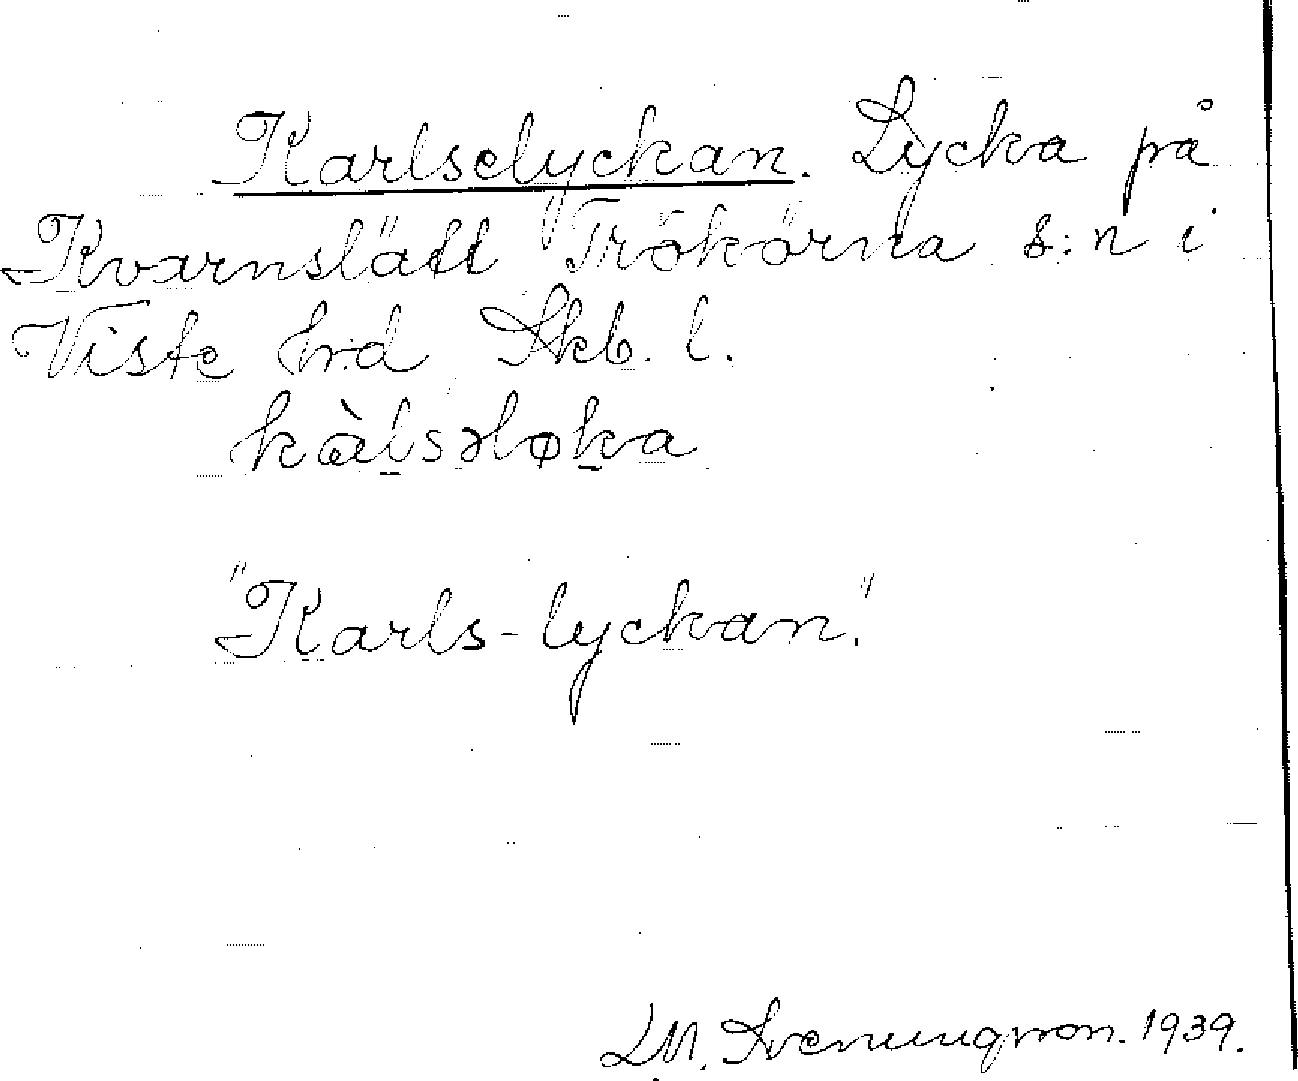 Karlselyckan. Lycka på
Kvarnslätt Trökörna s:n i
Viste hrd Skb. l.
kàlsəløka
"Karls-lyckan."
L.M. Svenungsson. 1939.